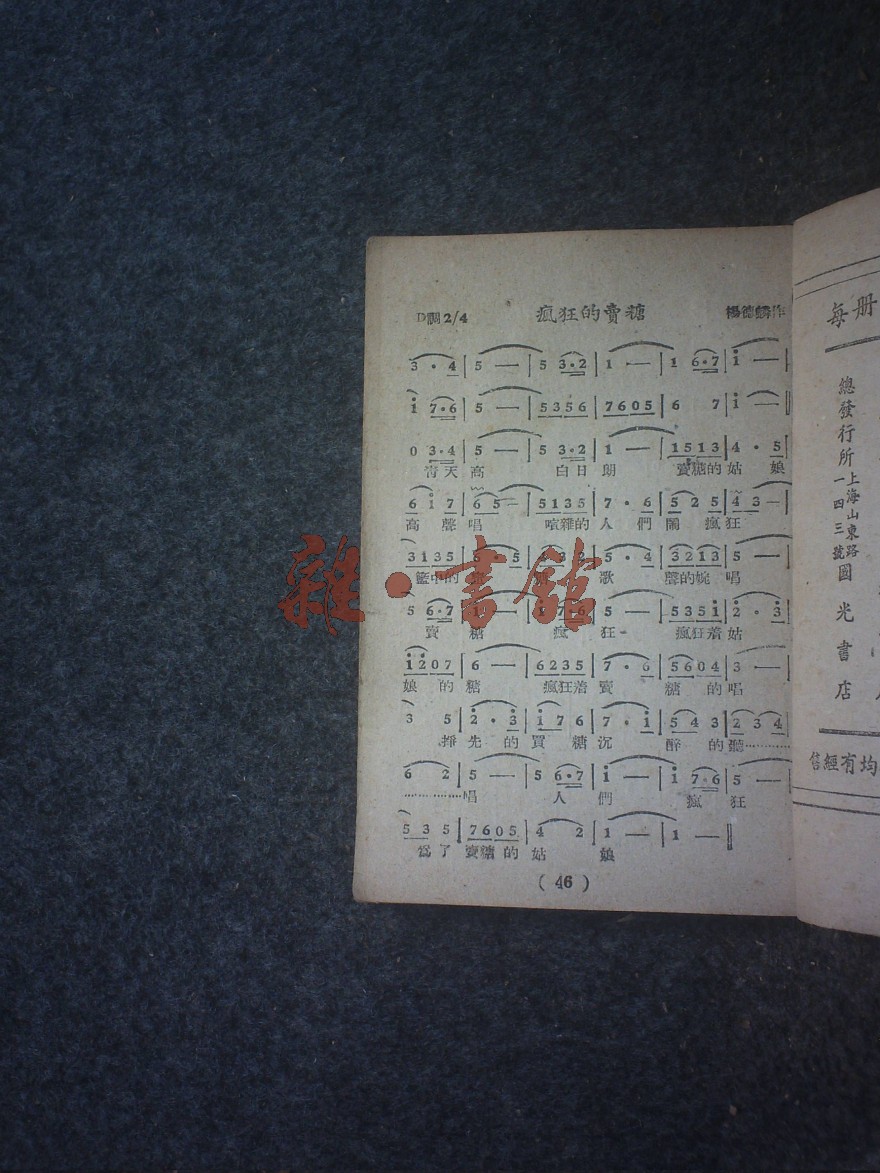 D調2/4 瘋狂的賣糖 楊德麟作
3 · 4 | 5 — | 5 3·2 | 1 — | 1 6·7 | i —
i 7·6 | 5 — | 5356 | 7605 | 6 7 | i — ‖
0 3·4 | 5 — | 5 3·2 | 1 — | 1513 | 4 · 5
青天高 白日朗 賣糖的姑娘
6 i 7 | 65 — | 5135 | 7 · 6 | 5 2 5 | 4 3 —
高聲唱 喧雜的人們鬧瘋狂
3135
籃中的 歌聲的婉唱
5 6·7
賣糖 瘋狂 瘋狂着姑
i207 | 6 — | 6235 | 7 · 6 | 5604 | 3 —
娘的糖 瘋狂着賣糖的唱
3 5 | 2 · 3 | i 7 6 | 7 · i | 5 4 3 | 2 3 4
掙先的買糖沉醉的聽…………
6 2 | 5 — | 5 6·7 | i — | i 7·6 | 5 —
…………唱 人們瘋狂
5 3 5 | 7605 | 4 2 | 1 — | 1 — ‖
爲了賣糖的姑娘
( 46 )
每册
總發行所
上海山東路
一四三號
國光書店
均有經售
雜·書館